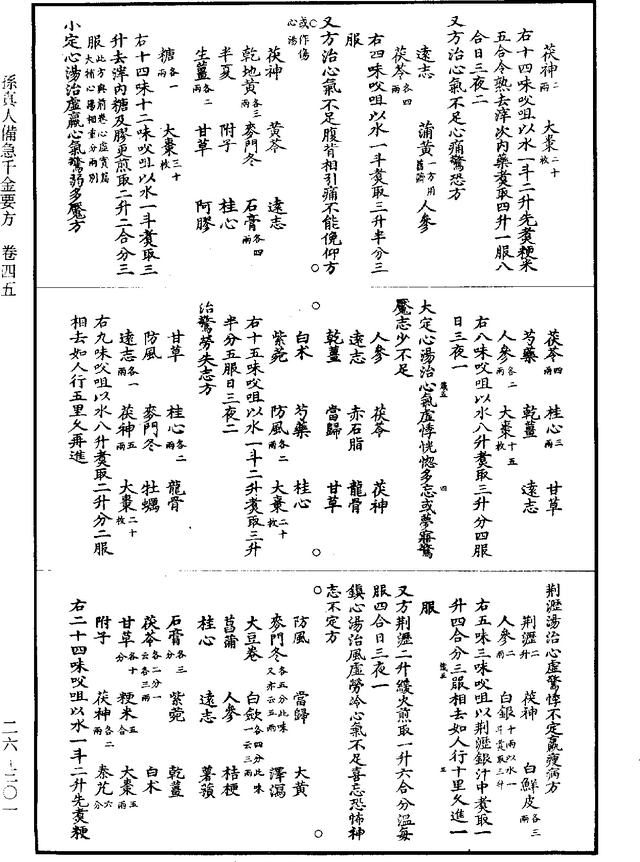 茯神二兩 大棗二十枚
右十四味㕮咀以水一斗二升先煑粳米
五合令熟去滓次内藥煑取四升一服八
合日三夜二
又方治心氣不足心痛驚恐方
遠志 蒲黃一方用菖蒲 人參
茯苓各四兩
右四味㕮咀以水一斗煑取三升半分三
服
又方治心氣不足腹背相引痛不能俛仰方
或作傷心湯
茯神 黃芩 遠志
乾地黃各三兩 麥門冬 石膏各四兩
半夏 附子 桂心
生薑各二兩 甘草 阿膠
糖各一兩 大棗三十枚
右十四味十二味㕮咀以水一斗煑取三
升去滓内糖及膠更煎取二升二合分三
服此方與前卷心虛實篇大補心湯相重分兩別
小定心湯治虛羸心氣驚弱多魘方
茯苓四兩 桂心三兩 甘草
芍藥 乾薑 遠志
人參各二兩 大棗十五枚
右八味㕮咀以水八升煑取三升分四服
日三夜一
大定心湯治心氣虛悸恍惚多忘或夢寤驚
魘志少不足
人參 茯苓 茯神
遠志 赤石脂 龍骨
乾薑 當歸 甘草
白术 芍藥 桂心
紫菀 防風各二兩 大棗二十枚
右十五味㕮咀以水一斗二升煑取三升
半分五服日三夜二
治驚勞失志方
甘草 桂心各二兩 龍骨
防風 麥門冬 牡蠣
遠志各一兩 茯神五兩 大棗二十枚
右九味㕮咀以水八升煑取二升分二服
相去如人行五里久再進
荆瀝湯治心虛驚悸不定羸瘦病方
荆瀝二升 茯神 白鮮皮各三兩
人參二兩 白銀十兩以水一斗煑取三升
右五味三味㕮咀以荆瀝銀汁中煑取一
升四合分三服相去如人行十里久進一
服
又方荆瀝二升緩火煎取一升六合分溫每
服四合日三夜一
鎮心湯治風虛勞冷心氣不足喜忘恐怖神
志不定方
防風 當歸 大黃
麥門冬各五分此味又云五兩 澤瀉
大豆卷 白斂各四分此味一云三兩
菖蒲 人參 桔梗
桂心 遠志 薯蕷
石膏各三分 紫菀 乾薑
茯苓各二分一云各三兩 白术
甘草各十分 粳米五合 大棗五兩
附子 茯神各二兩 秦艽六分
右二十四味㕮咀以水一斗二升先煑粳
孫真人備急千金要方 卷四五
二六·三〇一